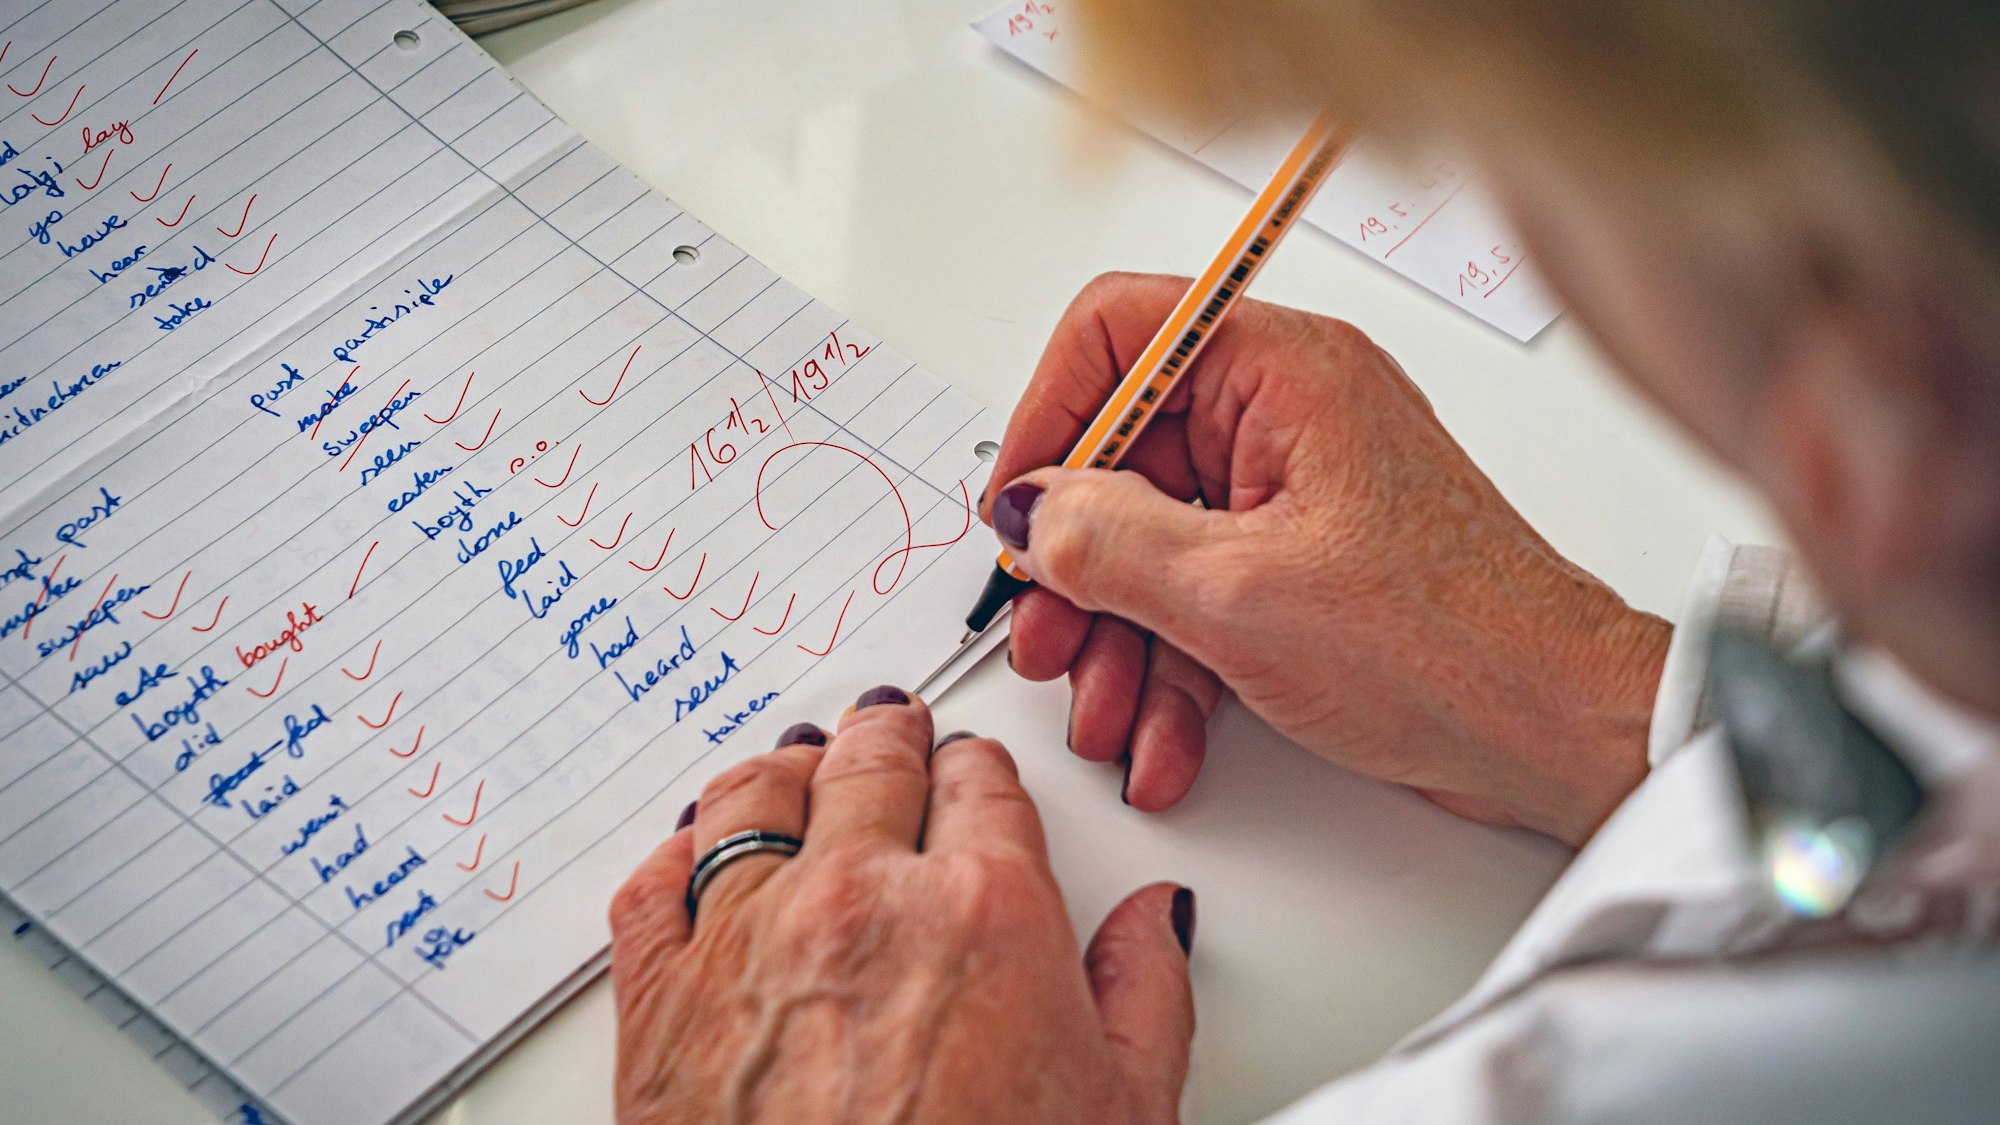 lay
go
have
hear
send
take
past partisiple
make
sweepen
seen
eaten
boyth s.o.
done
fed
laid
gone
had
heard
sent
taken
16 1/2 / 19 1/2
2
past
make
sweepen
saw
ate
boyth bought
did
fed
laid
went
had
heard
sent
tok
19 1/2
19,5
19,5